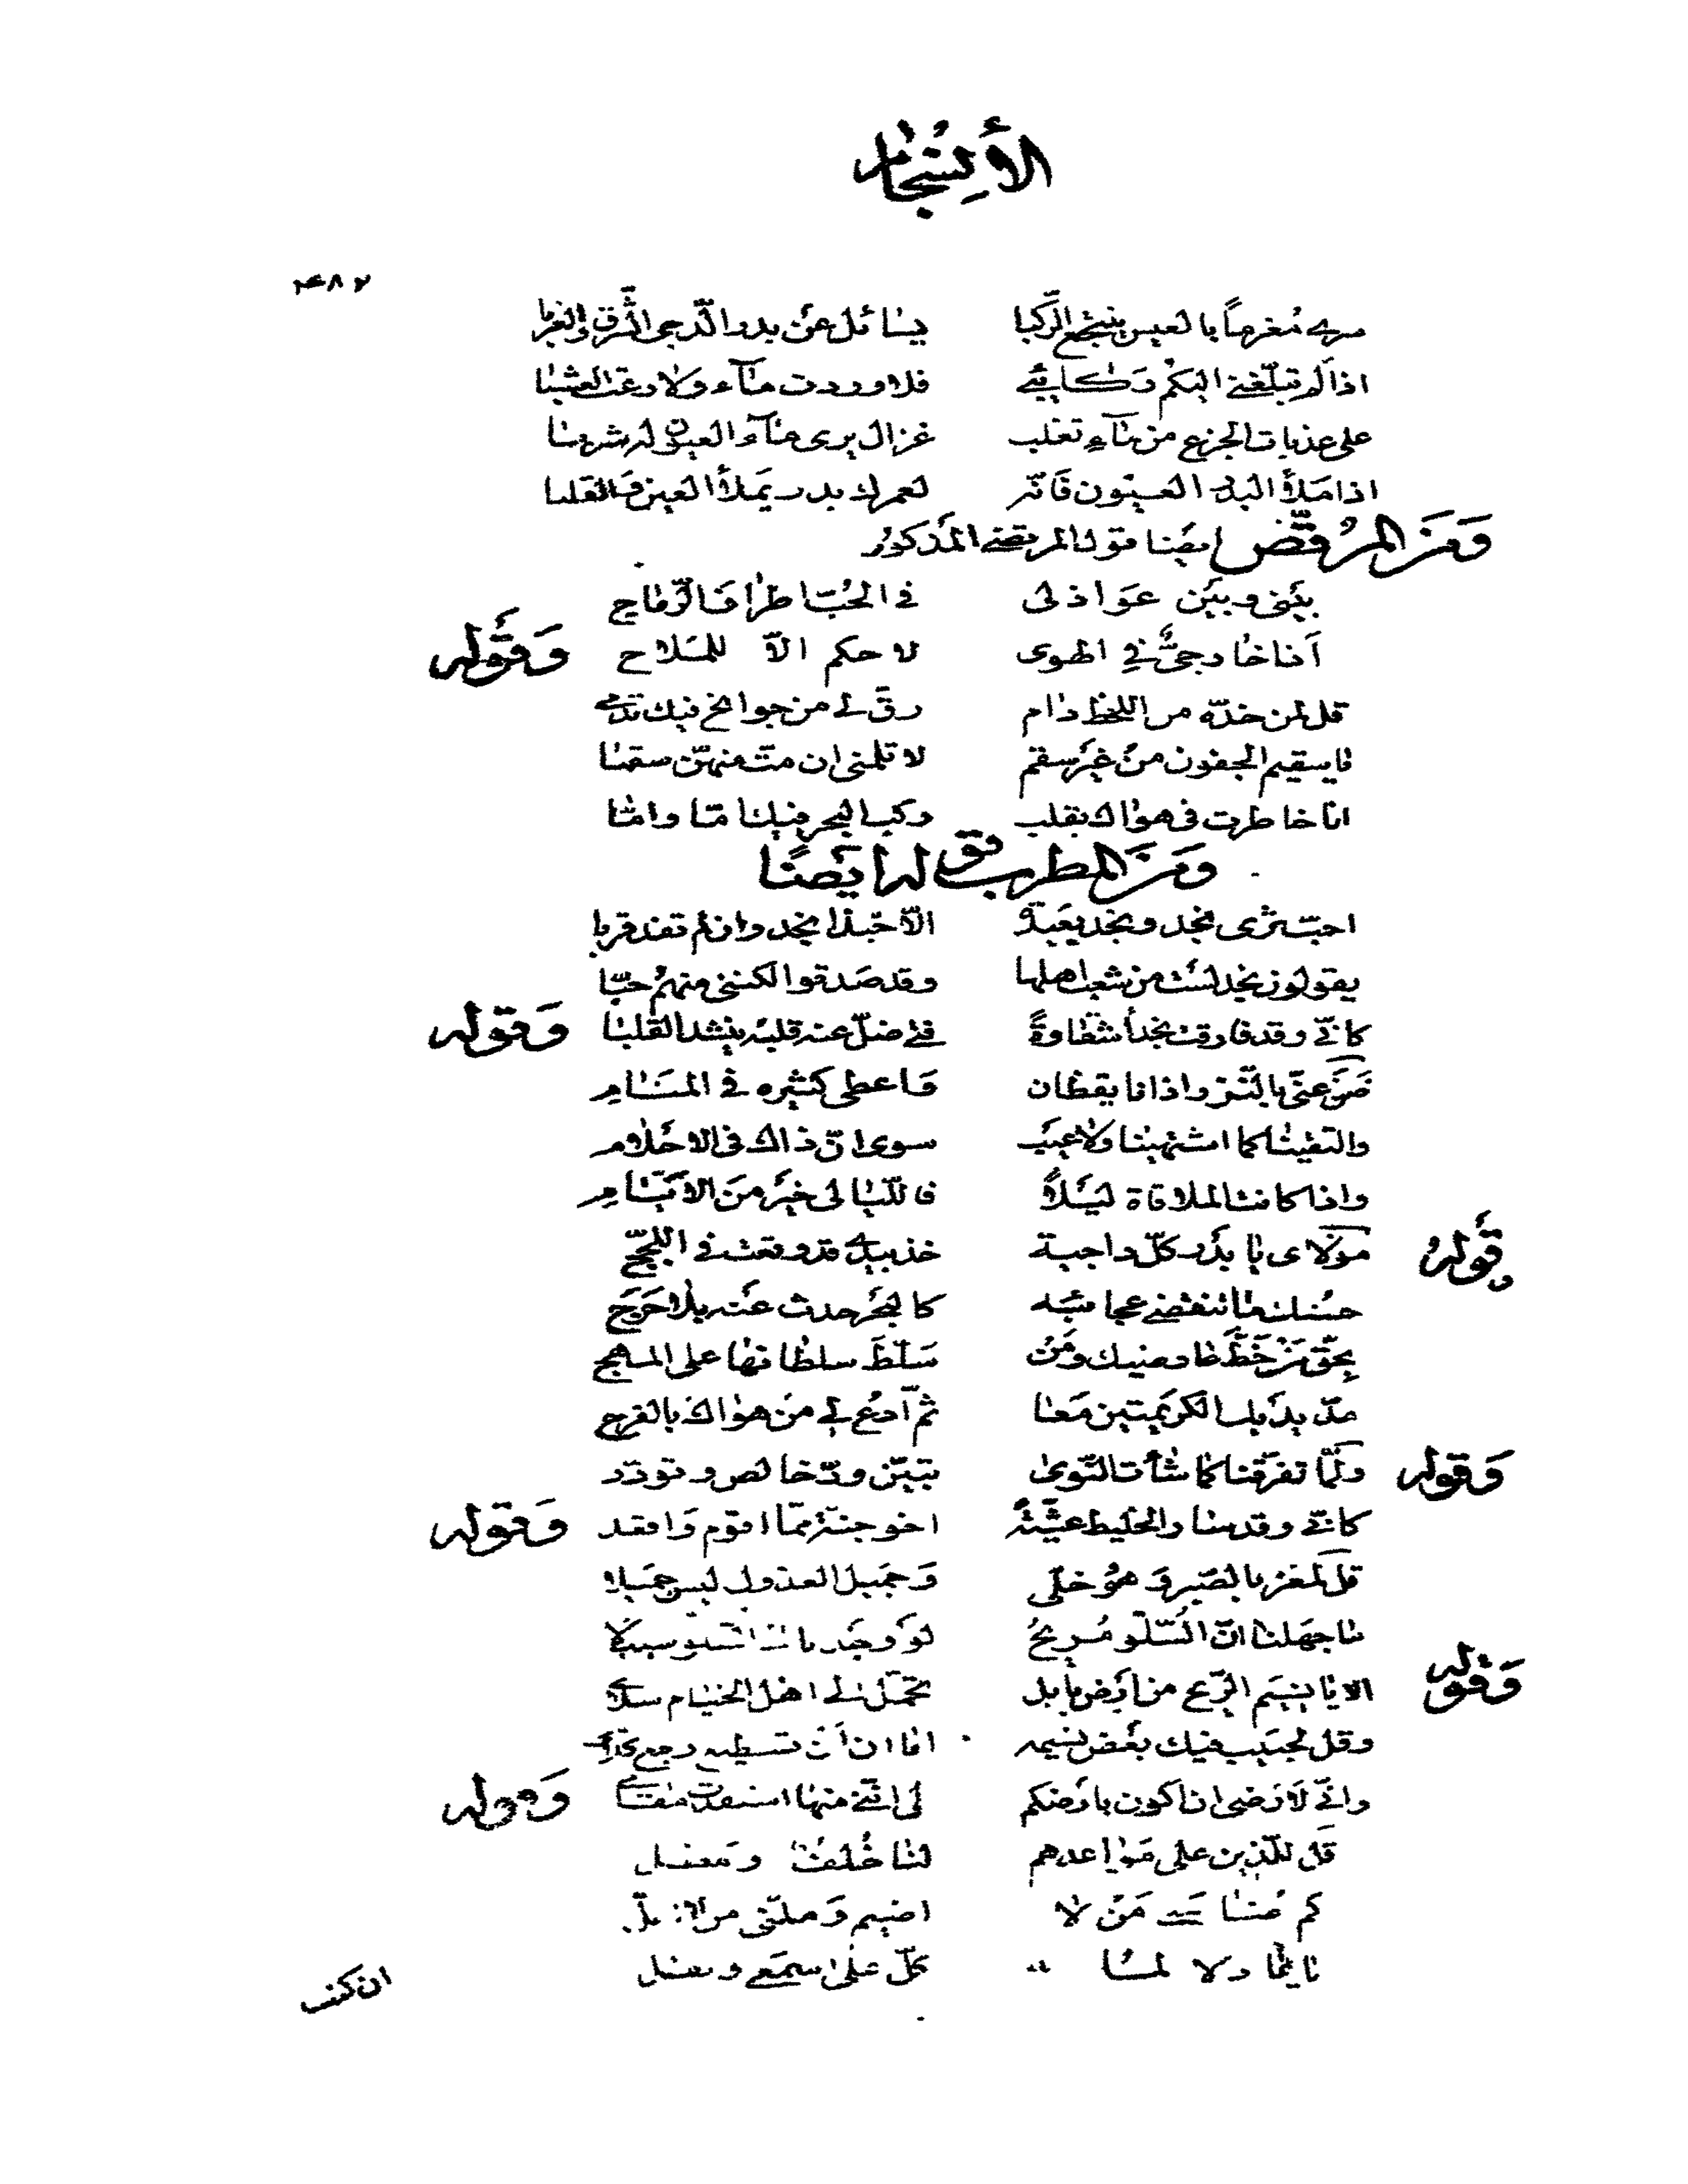 الأنسجام
٤٨٧
سرى مغرماً بالعيس ينتجع الرّكبا يسائل عن بدر الدّجى الشّرق والغربا
اذا لم تبلّغنى اليكم ركائبي فلا وردت ماء ولا رعت العشبا
على عذبات الجزع من ماء تغلب غزال يرى ماء العيون له شربا
اذا ملأ البدر العيون فانّه لعمرك بدر يملأ العين والقلبا
وَمن المُرقّض ايضا قول المرتضى المذكور
بيني وبين عواذلى في الحبّ اطراف الرّماح
أنا خارجىٌّ في الهوى لا حكم الّا للملاح
وَقوله
قل لمن خدّه من اللحظ دام رقّ لى من جوانح فيك تدمى
يا سقيم الجفون من غير سقم لا تلمنى ان متّ منهنّ سقما
انا خاطرت فى هواك بقلب ركب البحر فيك امّا وامّا
وَمن المطرب قوله ايضًا
احبّ ثرى نجد ونجد بعيدة الّا حبّذا نجد وان لم تفد قربا
يقولون نجد لست من شعب اهلها وقد صدقوا لكننى منهم حبّا
كانّى وقد فارقت نجداً شقاوةً فتى ضلّ عنه قلبه ينشد القلبا
وَقوله
ضنّ عنّى بالنّزر اذ انا يقظان واعطى كثيره فى المنام
والتقينا كما اشتهينا ولا عيب سوى انّ ذاك فى الاحلام
واذا كانت الملاقاة ليلاً فاللّيالى خير من الأيّام
وقوله
مولاى يا بدر كلّ داجية خذ بيدى قد وقعت فى اللجج
حسنك ما تنقضى عجائبه كالبحر حدث عنه بلا حرج
بحقّ من خطّ عارضيك ومن سلّط سلطانها على المهج
مدّ يديك الكريمتين معا ثمّ ادع لى من هواك بالفرج
وَقوله
ولمّا تفرّقنا كما شاءت النّوى تبيّن ودّ خالص وتودّد
كانّى وقد سار الخليط عشيّة اخو جنّة ممّا اقوم وَاقعد
وَقوله
قل لمغر بالصّبر وَهو خلّى وَجميل العذول ليس جميلا
ما جهلنا انّ السّلوّ مُريح لو وجدنا الى السّلو سبيلا
وَقوله
الا يا نسيم الرّيح من ارض بابل تحمّل الى اهل الخيام سلامى
وقل لحبيب فيك بعض نسيمه اما ان ان تسطيع رجع كلامى
وانّى لارضى ان اكون بارضكم على انّنى منها استفدت سقامى
وَقوله
قل للّذين على مواعدهم لنا خُلف ومطل
كم ضامنى من لا اضيم وملّنى من لا املّ
يا عاذلا لعتابه كلّ على سمعى وثقل
ان كنت